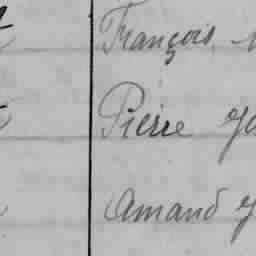 François
Pierre
Amand